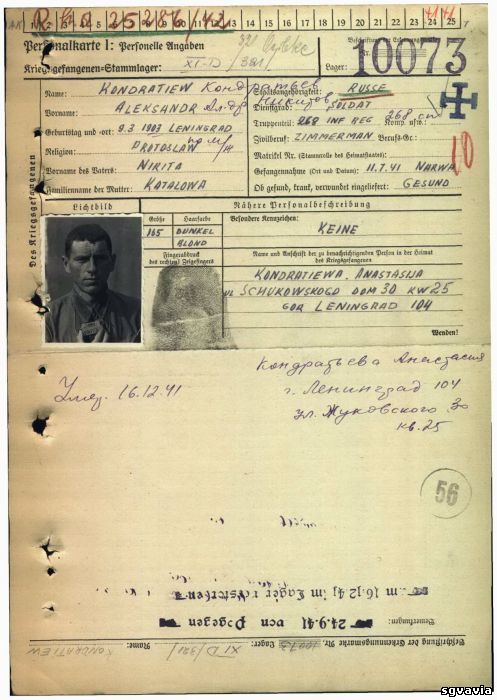 1 2 3 4 5 6 7 8 9 10 11 12 13 14 15 16 17 18 19 20 21 22 23 24 25
Personalkarte I: Personelle Angaben
Kriegsgefangenen-Stammlager: XI-D / 321
Beschriftung der Erkennungsmarke
Nr. 10073
Lager:
Des Kriegsgefangenen
Name: KONDRATIEW
Vorname: ALEKSANDR
Geburtstag und -ort: 9.3.1903 LENINGRAD
Religion: PROTOSLAW
Vorname des Vaters: NIKITA
Familienname der Mutter: KATALOWA
Staatsangehörigkeit: RUSSE
Dienstgrad: SOLDAT
Truppenteil: 268 INF REG
Zivilberuf: ZIMMERMAN Berufs-Gr.:
Matrikel Nr. (Stammrolle des Heimatstaates):
Gefangennahme (Ort und Datum): 11.7.41 NARWA
Ob gesund, krank, verwundet eingeliefert: GESUND
Lichtbild
Nähere Personalbeschreibung
Größe Haarfarbe Besondere Kennzeichen:
165 DUNKEL BLOND KEINE
Fingerabdruck des rechten Zeigefingers
Name und Anschrift der zu benachrichtigenden Person in der Heimat des Kriegsgefangenen
KONDRATIEWA. ANASTASIJA
ul SCHUKOWSKOGO DOM 30 KW 25
GOR LENINGRAD 104
Wenden!
Кондратьева Анастасия
г. Ленинград 104
ул. Жуковского 30
кв. 25
Умер. 16.12.41
56
16.12.41 im Lager verstorben
24.9.41 von Pogegen
Bemerkungen:
Beschriftung der Erkennungsmarke Nr. 10073 Lager: XI D/321 Name: KONDRATIEW
sgvavia